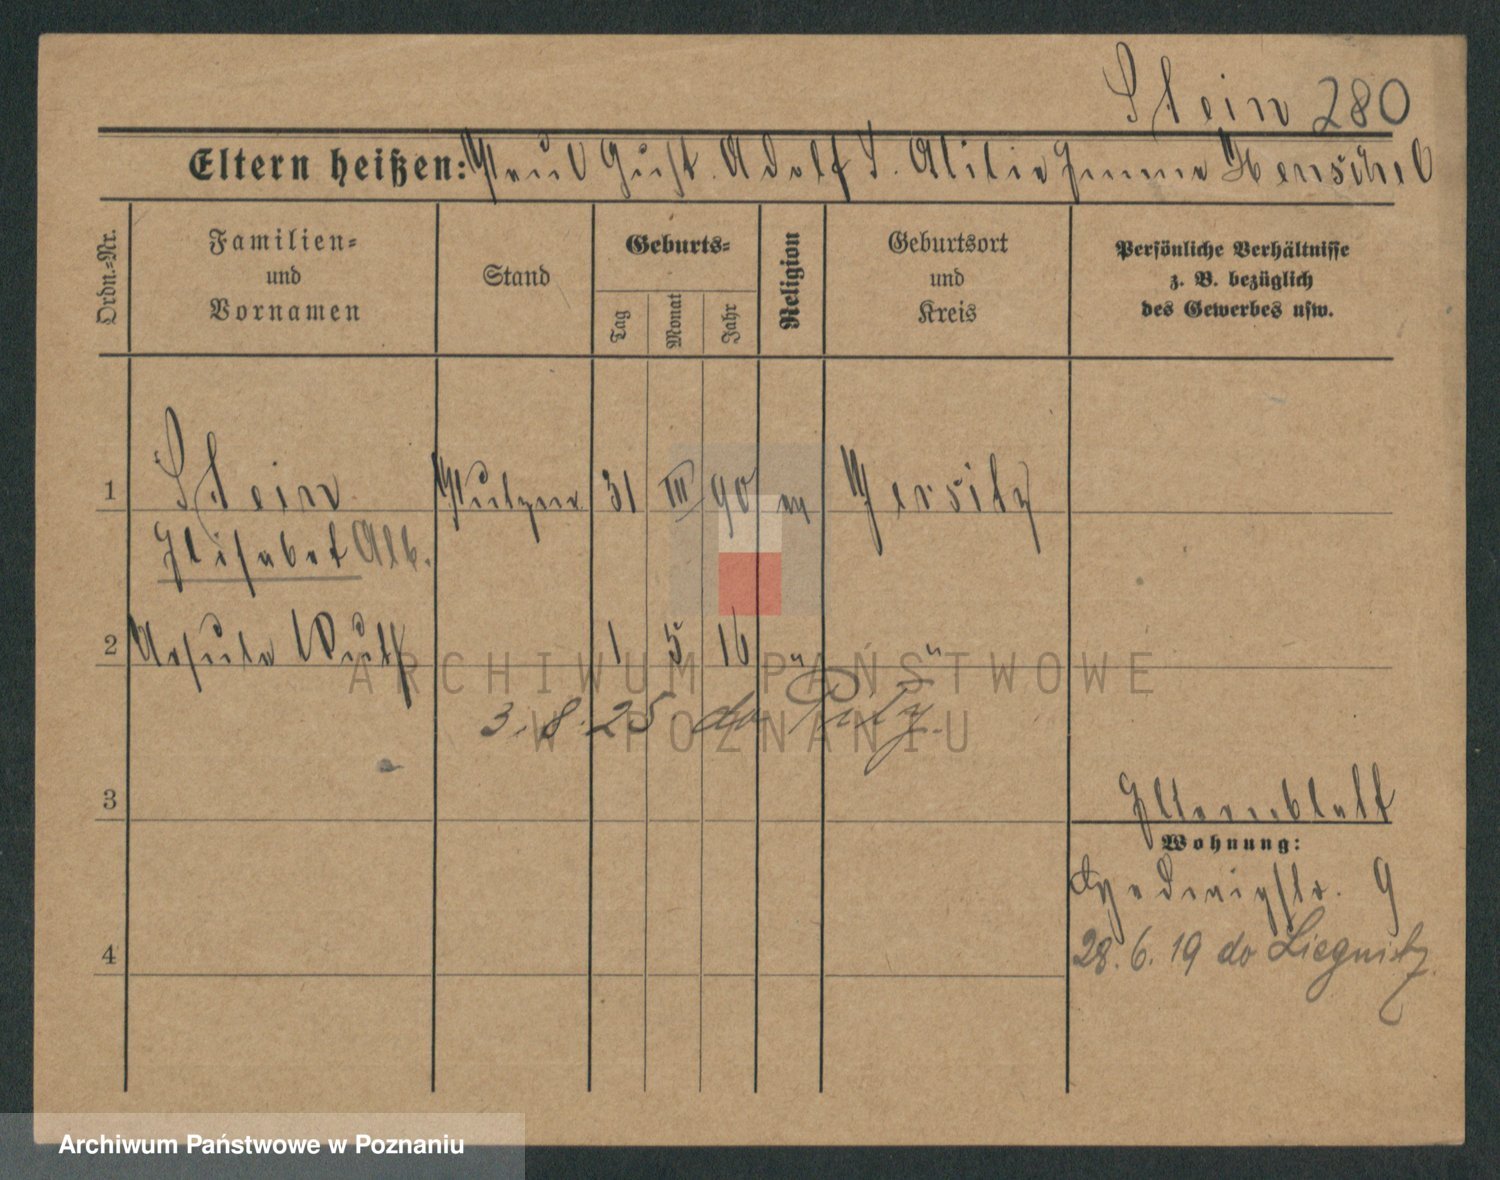 Stein 280
Eltern heißen: Paul Gust. Adolf S. Emma Henschel
Ordn.-Nr.
Familien-
und
Vornamen
Stand
Geburts-
Tag
Monat
Jahr
Religion
Geburtsort
und
Kreis
Persönliche Verhältnisse
z. B. bezüglich
des Gewerbes usw.
1 Stein 31 III 90 ev Jersitz
Elisabet Alb.
2 Ursula Ruth 1 5 16 " "
3. 8. 25 do Piły.
3
Elternblatt
Wohnung:
Hedwigstr. 9
28. 6. 19 do Liegnitz
4
ARCHIWUM PAŃSTWOWE
W POZNANIU
Archiwum Państwowe w Poznaniu